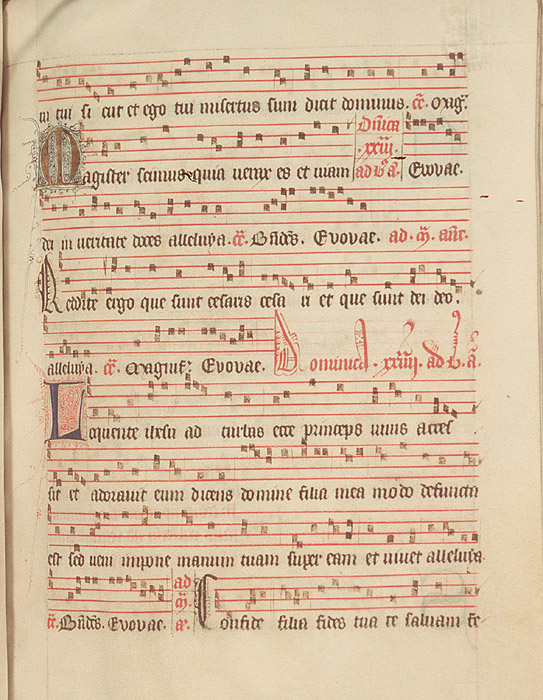 in tui si cut et ego tui misertus sum dicit dominus. cā. Magᷓ.
Dn̄ica
.xxiij.
Magister scimus quia verax es et viam ad b̄. a. Evovae.
dei in veritate doces alleluya. cā. Bn̄dc̄s. Evovae. ad m̄. ant̄.
Reddite ergo que sunt cesaris cesa ri et que sunt dei deo.
alleluya. cā. Magnif̄. Evovae. Dominica .xxiiij. ad b̄. a.
Loquente ihesu ad turbas ecce princeps unus acces
sit et adoravit eum dicens domine filia mea modo defuncta
est sed veni impone manum tuam super eam et vivet alleluya.
ad
m̄.
cā. Bn̄dc̄s. Evovae. a. Confide filia fides tua te salvam fe